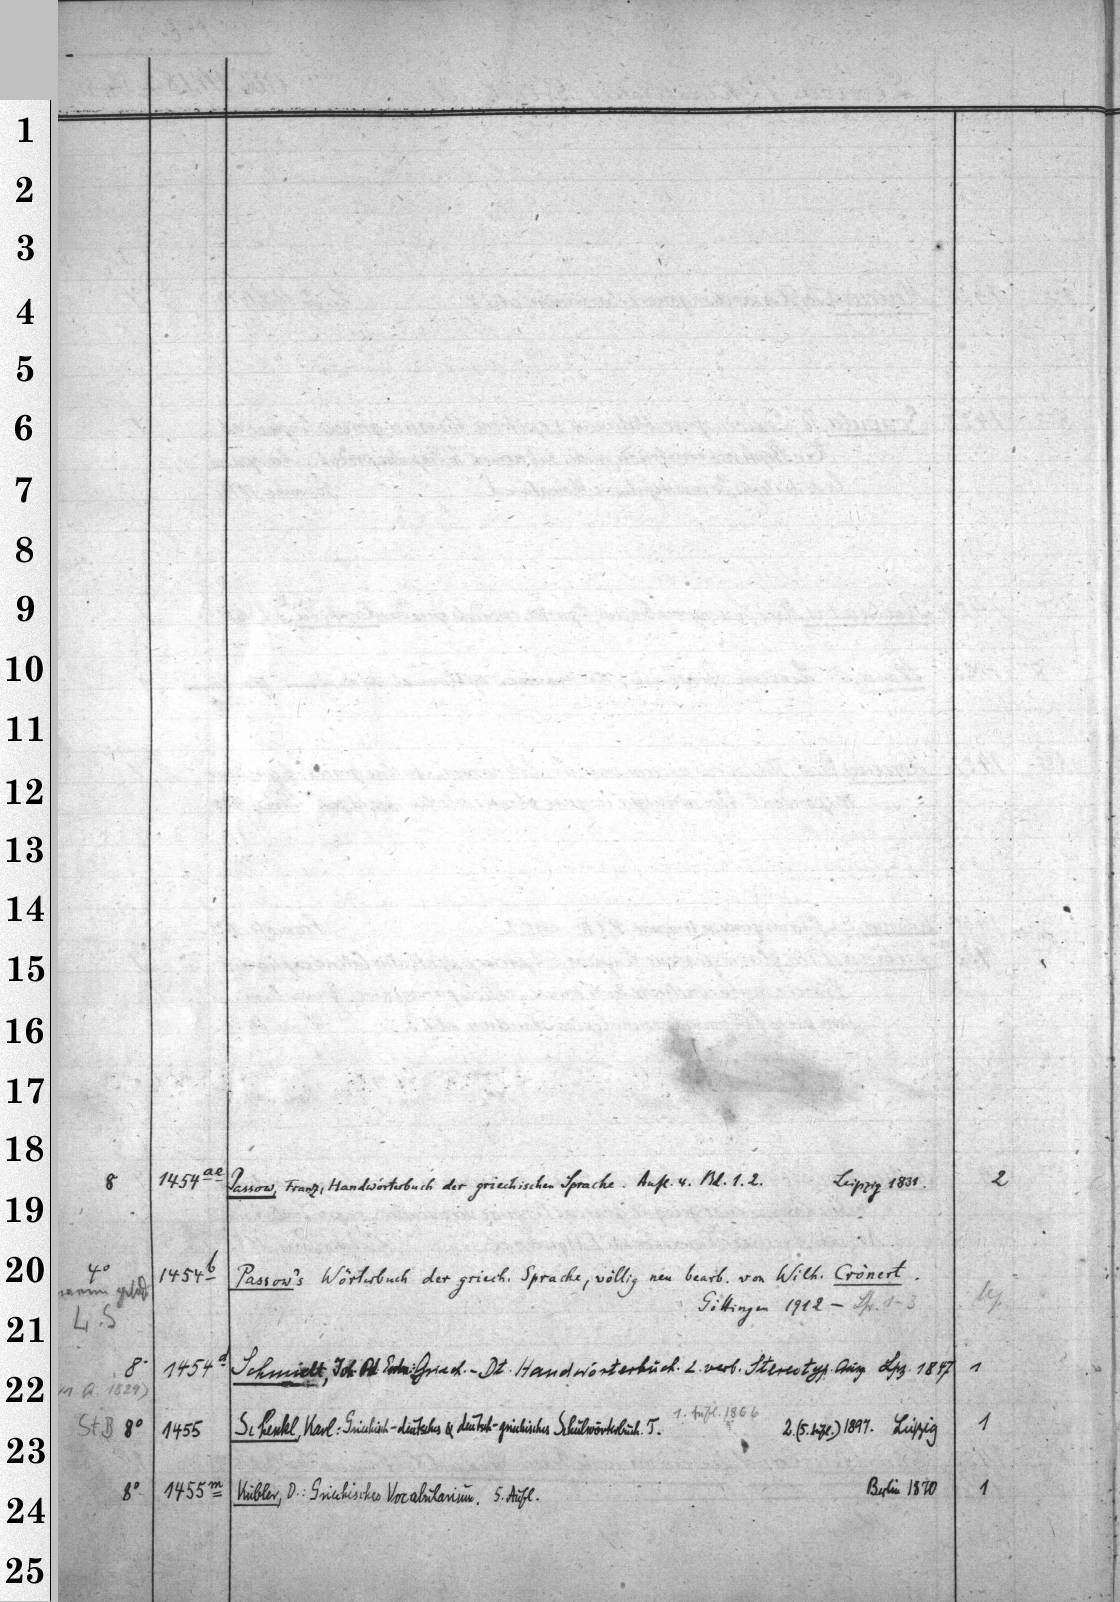 1
2
3
4
5
6
7
8
9
10
11
12
13
14
15
16
17
18
8 1454ae Passow, Franz, Handwörterbuch der griechischen Sprache. Aufl. 4. Bd. 1.2. Leipzig 1831. 2
19
20
4° 1454b Passow's Wörterbuch der griech. Sprache, völlig neu bearb. von Wilh. Crönert.
L.S Göttingen 1912 – Lfr. 1-3
21
8° 1454d Schmidt, Joh. Griech.-Dt. Handwörterbuch. 2. verb. Stereotyp. Ausg Lpz. 1847 1
22 A. 1829)
1. Aufl. 1866
StB 8° 1455 Schenkl, Karl: Griechisch-deutsches & deutsch-griechisches Schulwörterbuch. T. 2.(5. Aufl.) 1897. Leipzig 1
23
8° 1455m Kübler, O.: Griechisches Vocabularium. 5. Aufl. Berlin 1870 1
24
25